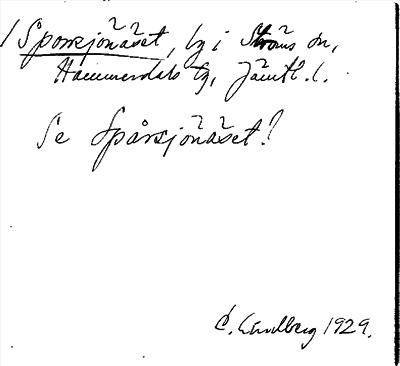 / Sporrsjönäset, by i Ströms sn,
Hammerdals tg, Jämtl. l.
Se Spårsjönäset!
E. Lundberg 1929.